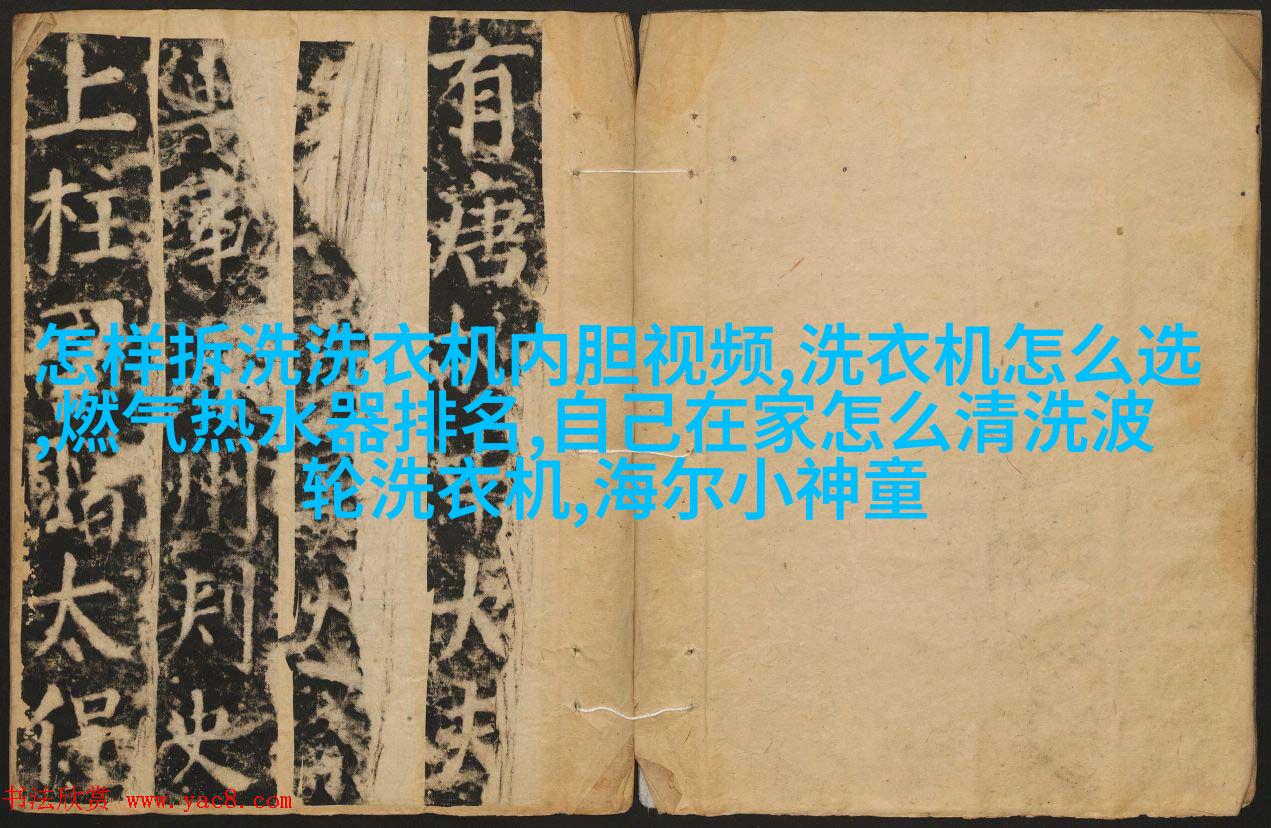 怎样拆洗洗衣机内胆视频,洗衣机怎么选
,燃气热水器排名,自己在家怎么清洗波
轮洗衣机,海尔小神童
有唐大夫
軍州刺史
上柱國太保
书法欣赏 www.yac8.com